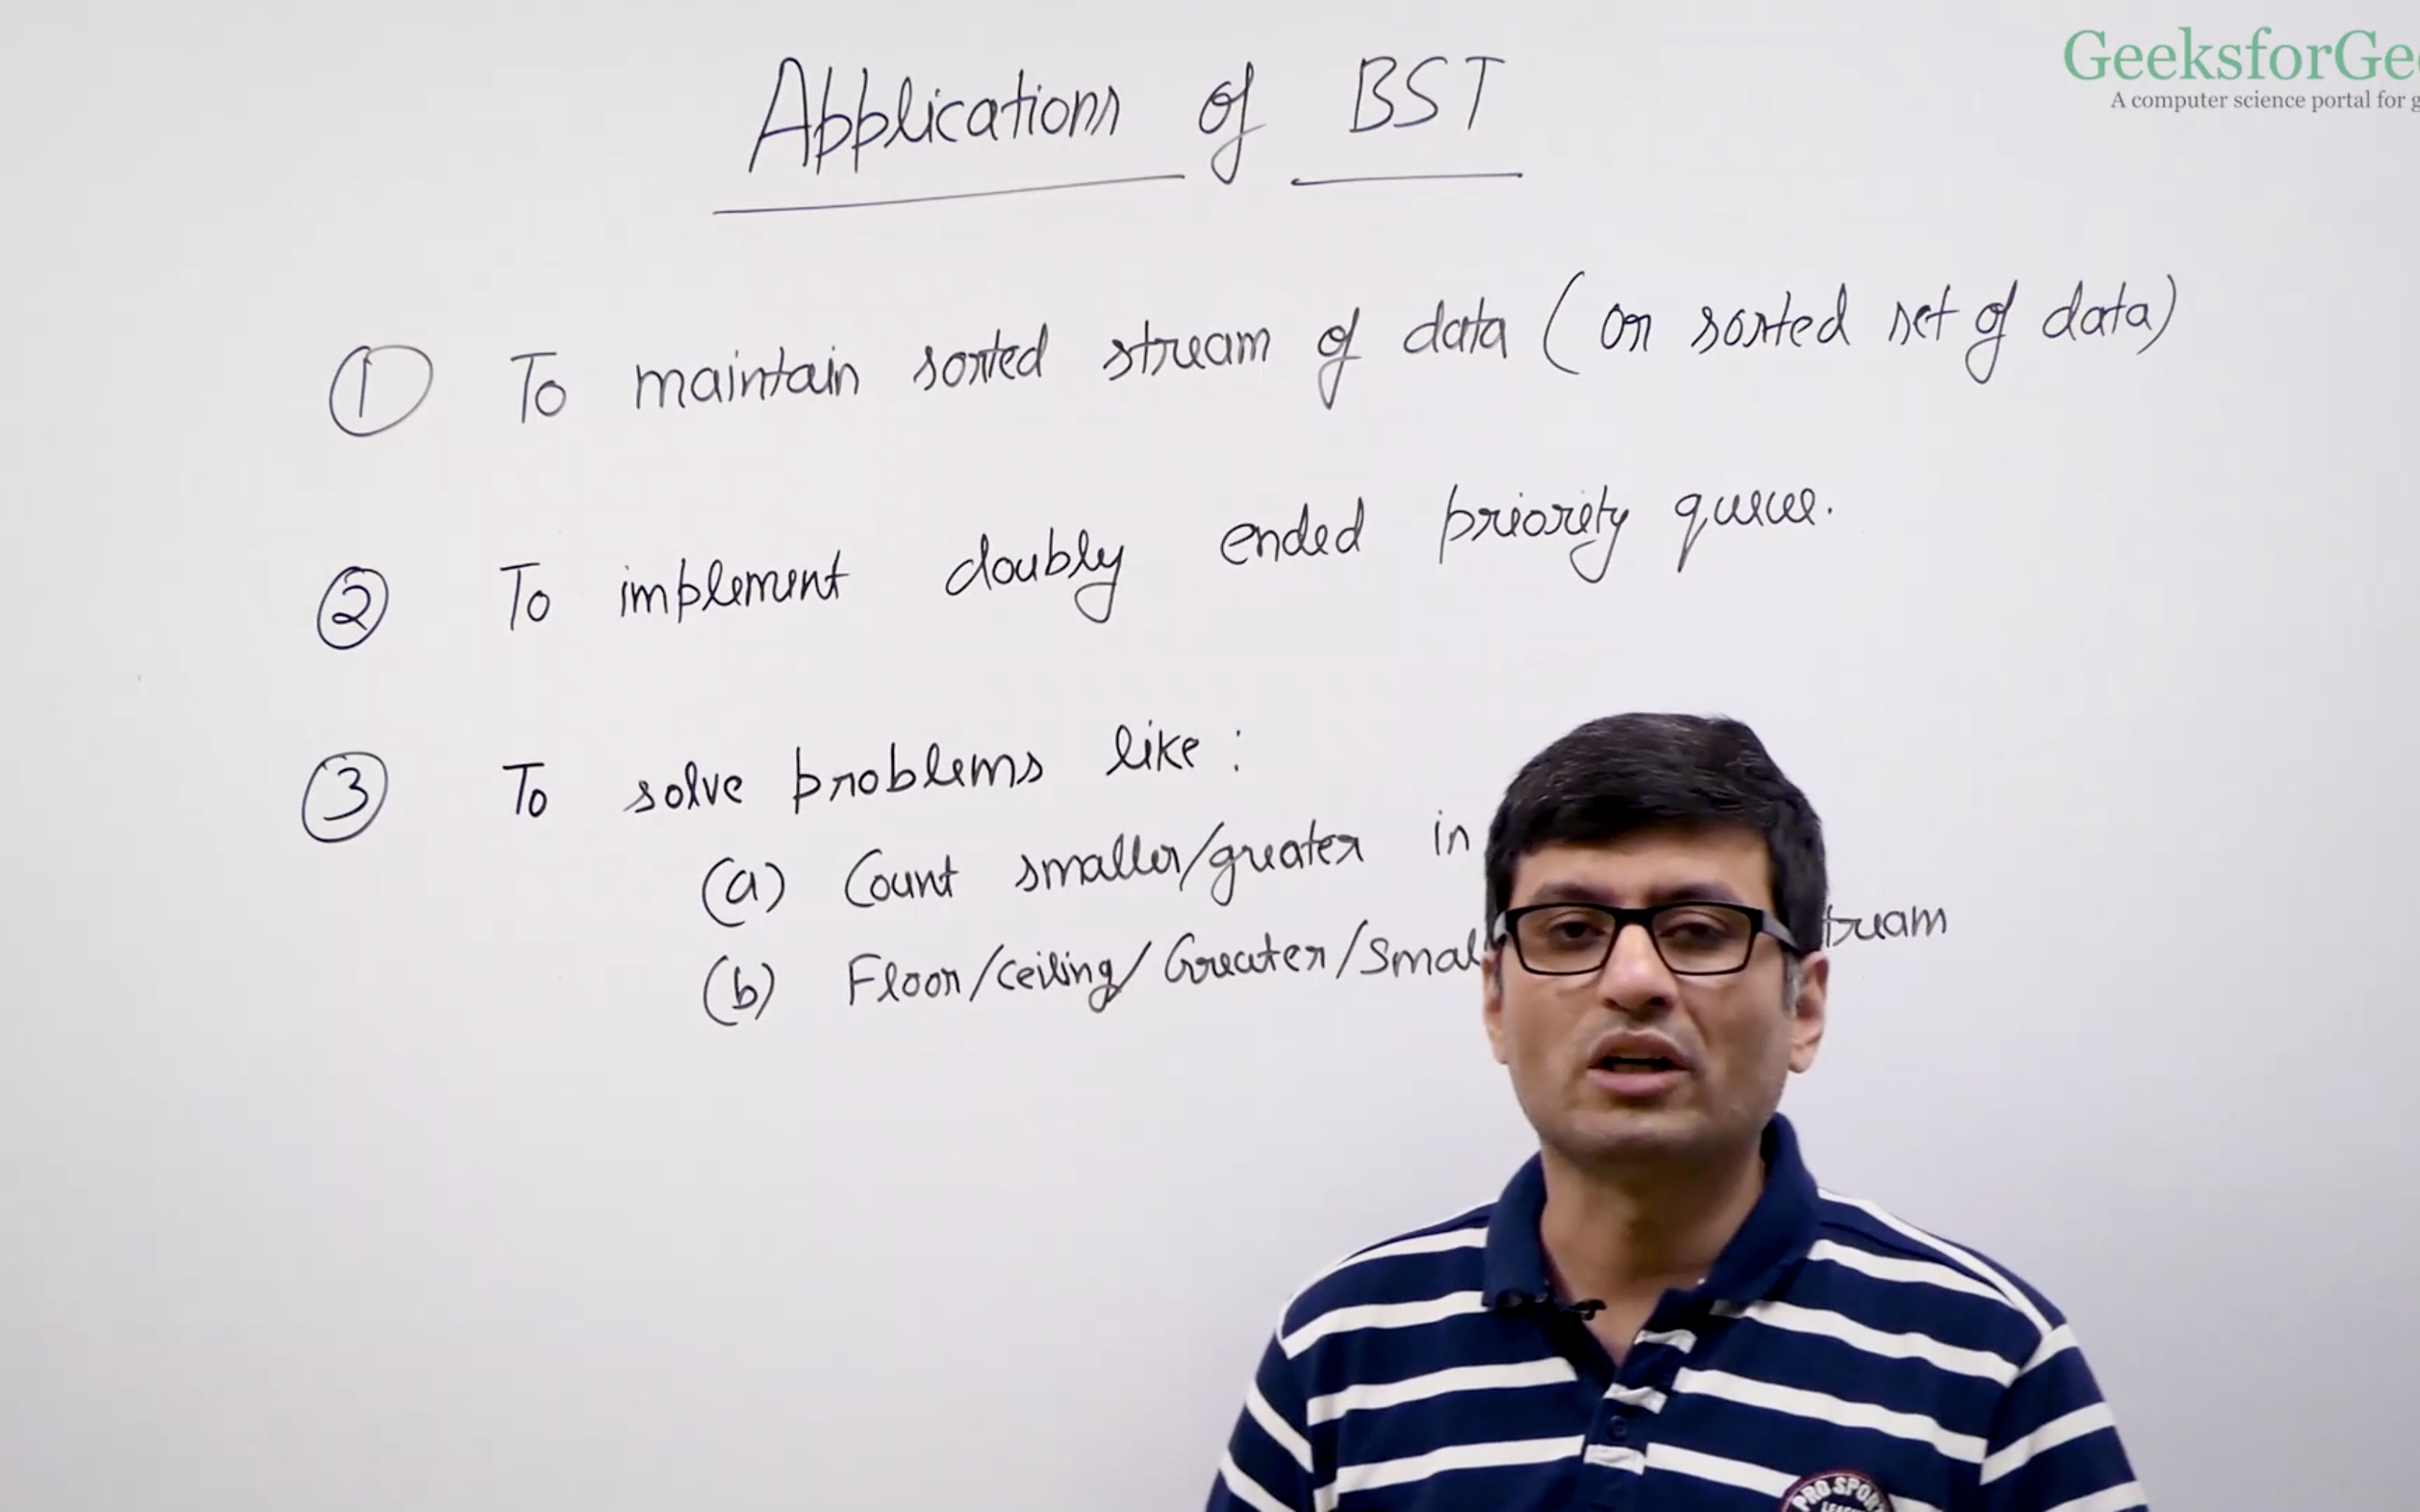 GeeksforGee
A computer science portal for g
Applications of BST
① To maintain sorted stream of data (or sorted set of data)
② To implement doubly ended priority queue.
③ To solve problems like:
(a) Count smaller/greater in
(b) Floor/ceiling/Greater/Small tream
PRO SPOR
LEAG